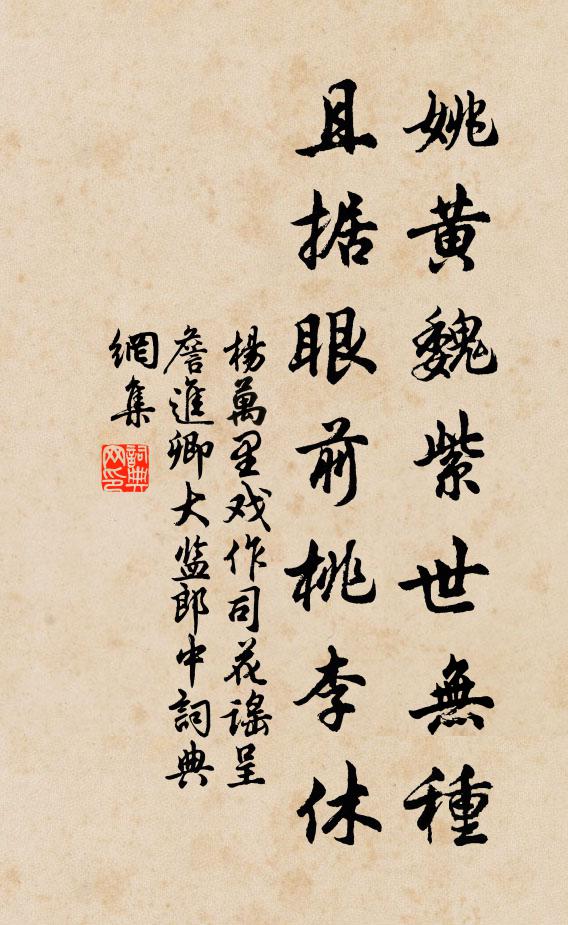 姚黄魏紫世無種
且据眼前桃李休
楊萬里戏作司花謠呈
詹進卿大监郎中詞典
網集
詞典網印